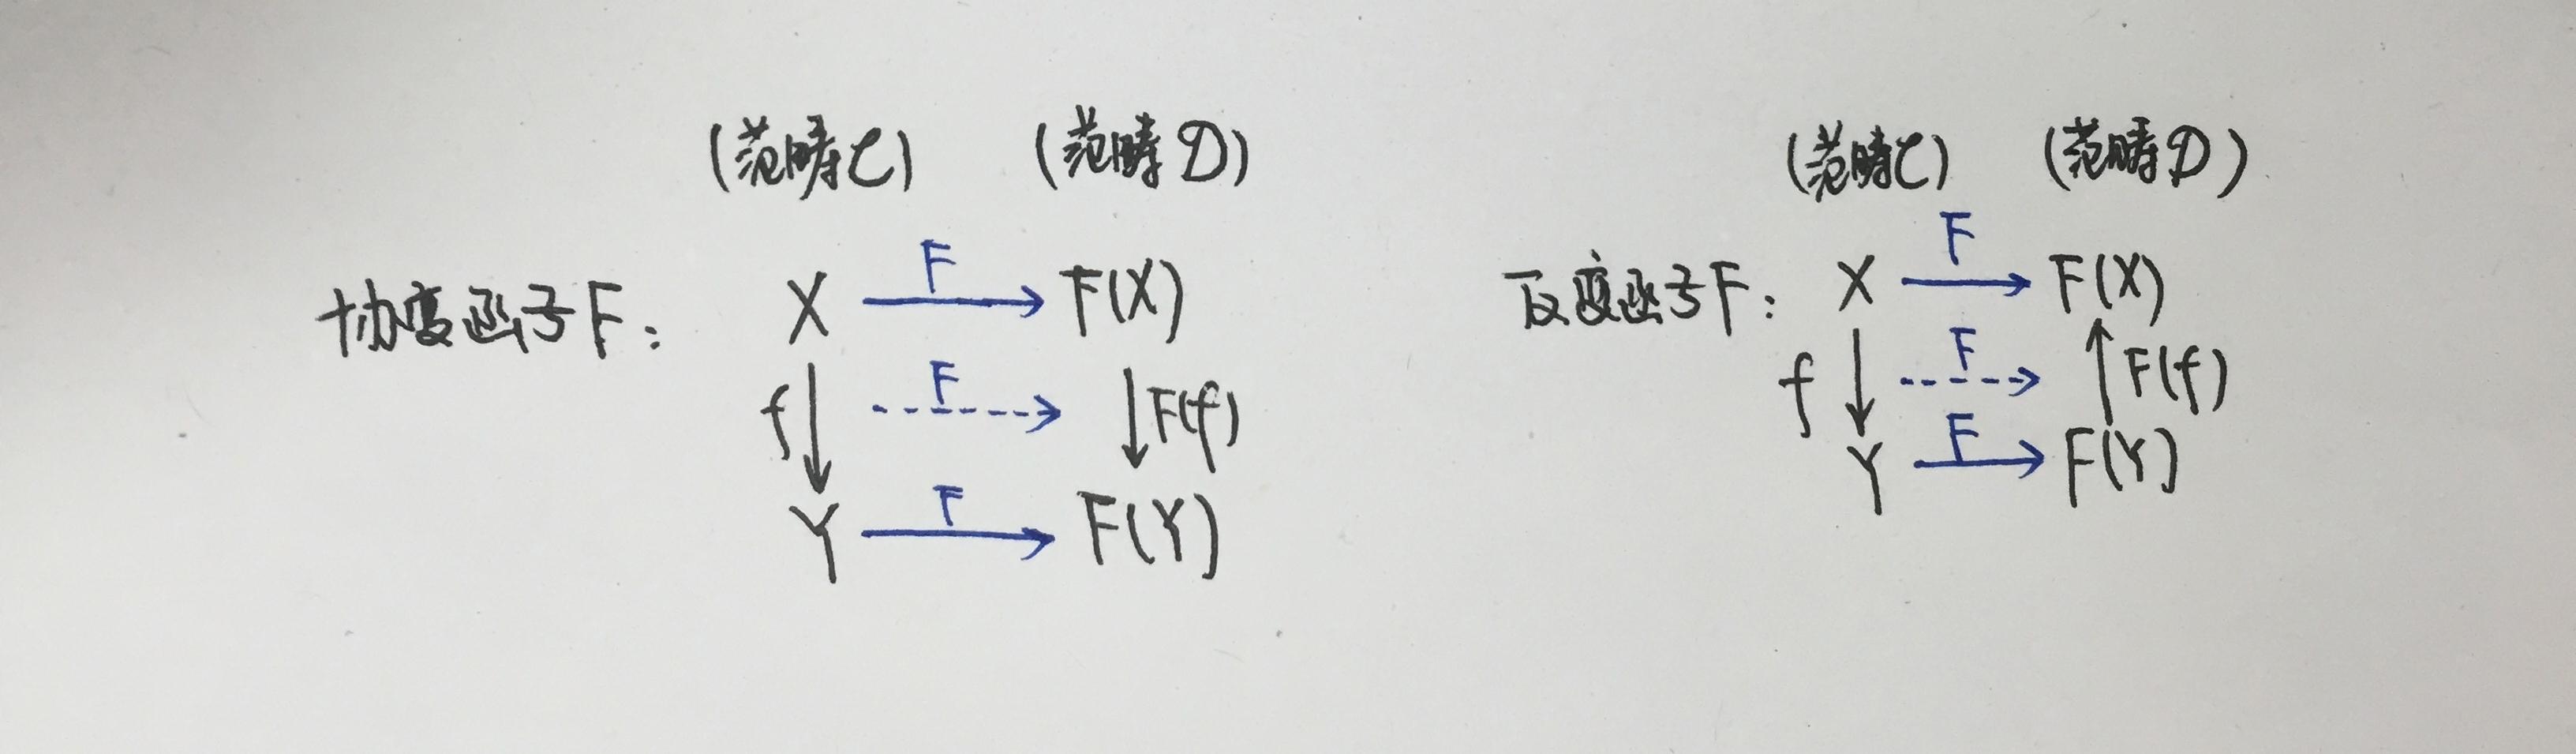 (范畴C) (范畴D)
协变函子F: X F F(X)
f F F(f)
Y F F(Y)
(范畴C) (范畴D)
反变函子F: X F F(X)
f F F(f)
Y F F(Y)